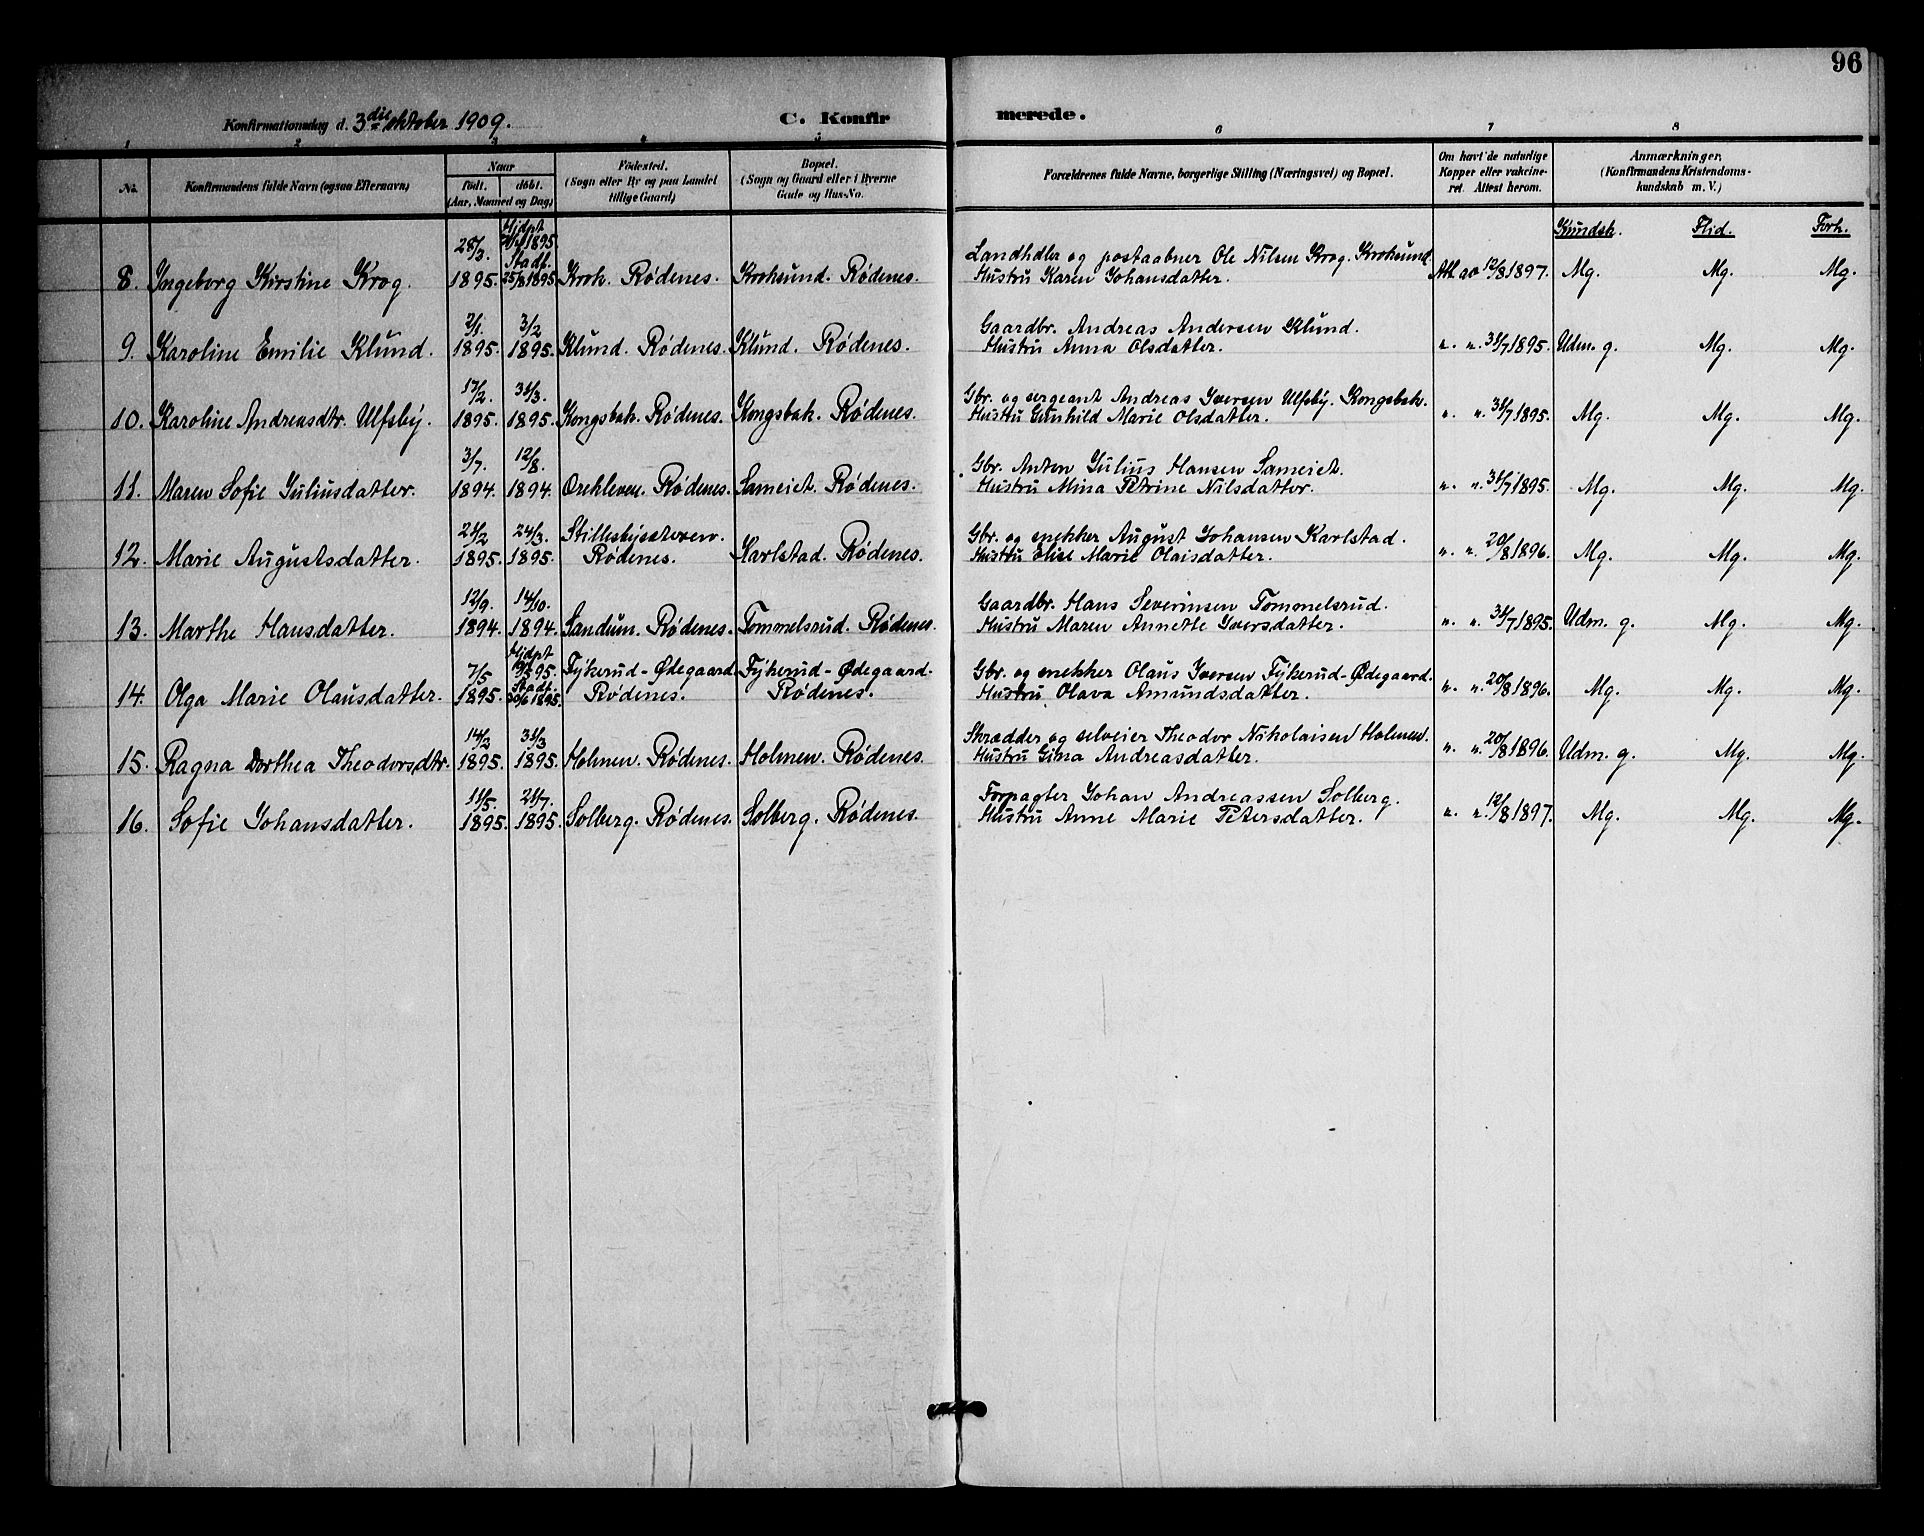 96
Konfirmationsdag d. 3die oktober 1909. C. Konfirmerede.
1 2 3 4 5 6 7 8
No. Konfirmandens fulde Navn (ogsaa Efternavn) Naar født. døbt. (Aar, Maaned og Dag) Fødested. (Sogn eller By og paa Landet tillige Gaard) Bopæl. (Sogn og Gaard eller i Byerne Gade og Hus-No. Forældrenes fulde Navne, borgerlige Stilling (Næringsvei) og Bopæl. Om havt de naturlige Kopper eller vakcineret. Attest herom. Anmærkninger. (Konfirmandens Kristendomskundskab m. V.)
Kundsk. Flid. Forh.
8. Ingeborg Kirstine Krog. 28/3. 1895. Hjdpt 1895. Stadf. 25/8 1895 Krok. Rødenes. Kroksund. Rødenes. Landhdler og postaabner Ole Nilsen Krog. Kroksund
Hustru Karen Johansdatter. 12/8 1897. Mg. Mg. Mg.
9. Karoline Emilie Klund. 2/1. 1895. 3/2 1895. Klund. Rødenes. Klund. Rødenes. Gaardbr. Andreas Andersen Klund.
Hustru Anna Olsdatter. „ „ 31/7 1895. Udm. g. Mg. Mg.
10. Karoline Andreasdtr. Ulfsby. 17/2. 1895. 31/3. 1895. Kongsbak. Rødenes. Kongsbak. Rødenes. Gbr. og sergeant Andreas Iversen Ulfsby. Kongsbak.
Hustru Gunhild Marie Olsdatter. „ „ 31/7 1895. Mg. Mg. Mg.
11. Maren Sofie Juliusdatter. 3/7. 1894. 12/8. 1894. Rødenes. Sameiet. Rødenes. Gbr. Anton Julius Hansen Sameiet.
Hustru Mina Petrine Nilsdatter. „ „ 31/7 1895. Mg. Mg. Mg.
12. Marie Augustsdatter. 21/2 1895. 24/3. 1895. Rødenes. Karlstad. Rødenes. Gbr. og snekker August Johansen Karlstad.
Hustru Elise Marie Olaisdatter. „ „ 20/8 1896. Mg. Mg. Mg.
13. Marthe Hansdatter. 12/9. 1894. 14/10. 1894. Sandum. Rødenes. Tommelsrud. Rødenes. Gaardbr. Hans Severinsen Tommelsrud.
Hustru Maren Annette Iversdatter. „ „ 31/7 1895. Udm. g. Mg. Mg.
14. Olga Marie Olausdatter. 7/5 1895. Hjdpt 95. Stadf. 30/6 1895. Fykerud-Ødegaard Rødenes. Fykerud-Ødegaard. Rødenes. Gbr. og snekker Olaus Iversen Fykerud-Ødegaard.
Hustru Olava Amundsdatter. „ „ 20/8 1896. Mg. Mg. Mg.
15. Ragna Dorthea Theodorsdtr. 14/2 1895. 31/3 1895. Holmen. Rødenes. Holmen. Rødenes. Skrædder og selveier Theodor Nikolaisen Holmen.
Hustru Gina Andreasdatter. „ „ 20/8 1896. Udm. g. Mg. Mg.
16. Sofie Johansdatter. 11/5. 1895. 21/7. 1895. Solberg. Rødenes. Solberg. Rødenes. Forpagter Johan Andreassen Solberg.
Hustru Anne Marie Petersdatter. „ „ 12/8 1897. Mg. Mg. Mg.